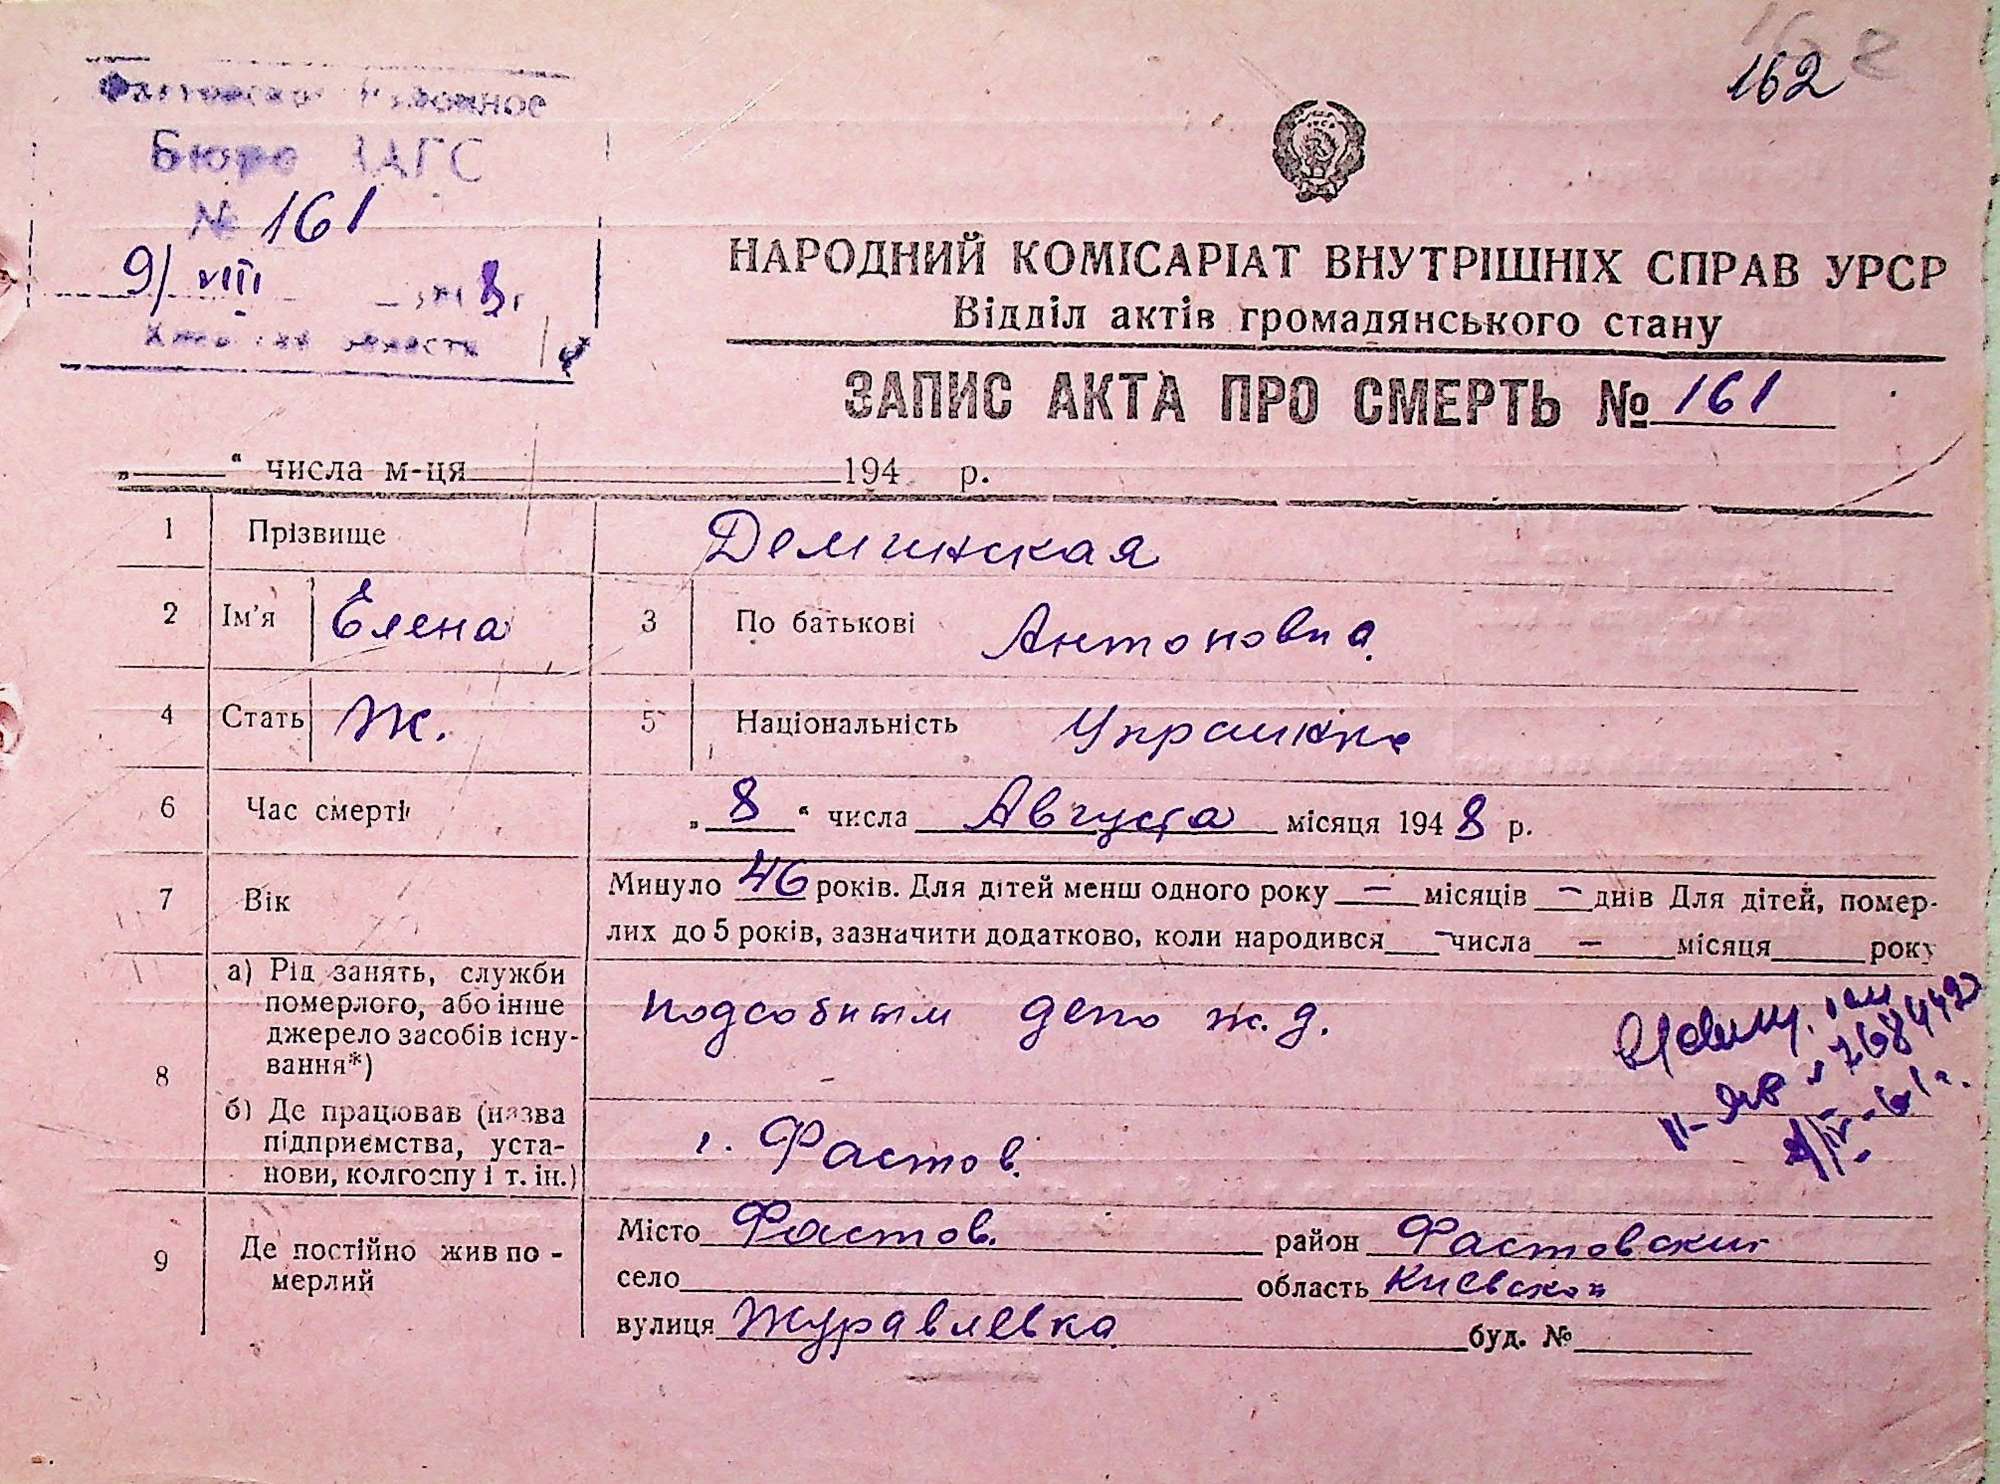 162
Фастовское Районное
Бюро ЗАГС
№ 161
9/ VIII 1948 г
Киевской области
НАРОДНИЙ КОМІСАРІАТ ВНУТРІШНІХ СПРАВ УРСР
Відділ актів громадянського стану
ЗАПИС АКТА ПРО СМЕРТЬ № 161
„ “ числа м-ця 194 р.
1 Прізвище Деминская
2 Ім'я Елена 3 По батькові Антоновна
4 Стать Ж. 5 Національність Украинка
6 Час смерті „ 8 “ числа Августа місяця 1948 р.
7 Вік Минуло 46 років. Для дітей менш одного року — місяців — днів Для дітей, помер-
лих до 5 років, зазначити додатково, коли народився — числа — місяця року
8 а) Рід занять, служби
померлого, або інше
джерело засобів існу-
вання*)
подсобным депо ж.д.
б) Де працював (назва
підприємства, уста-
нови, колгоспу і т. ін.)
г. Фастов.
9 Де постійно жив по-
мерлий
Місто Фастов. район Фастовский
село область Киевской
вулиця Журавлевка буд. №